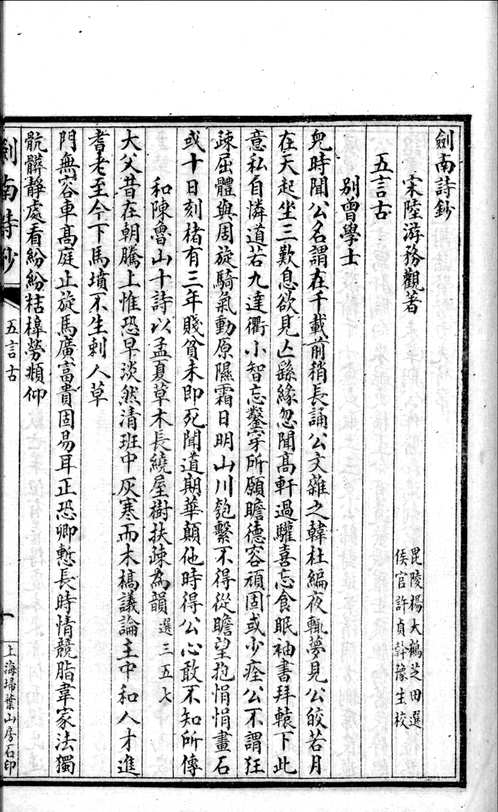 劍南詩鈔
宋陸游務觀著
毘陵楊大鶴芝田選
侯官許貞幹豫生校
五言古
別曾學士
兒時聞公名謂在千載前稍長誦公文雜之韓杜編夜輒夢見公皎若月
在天起坐三歎息欲見亡繇緣忽聞高軒過驩喜忘食眠袖書拜轅下此
意私自憐道若九達衢小智忘鑿穿所願瞻德容頑固或少痊公不謂狂
疎屈體與周旋騎氣動原隰霜日明山川匏繫不得從瞻望抱悁悁畫石
或十日刻楮有三年賤貧未即死聞道期華顛他時得公心敢不知所傳
和陳魯山十詩以孟夏草木長繞屋樹扶疎為韻 選三五七
大父昔在朝騰上惟恐早淡然清班中灰寒而木槁議論主中和人才進
耆老至今下馬墳不生刺人草
門無容車高庭止旋馬廣富貴固易耳正恐卿慙長時情競脂韋家法獨
骯髒靜處看紛紛桔橰勞頫仰
劍南詩鈔
五言古
一
上海埽葉山房石印